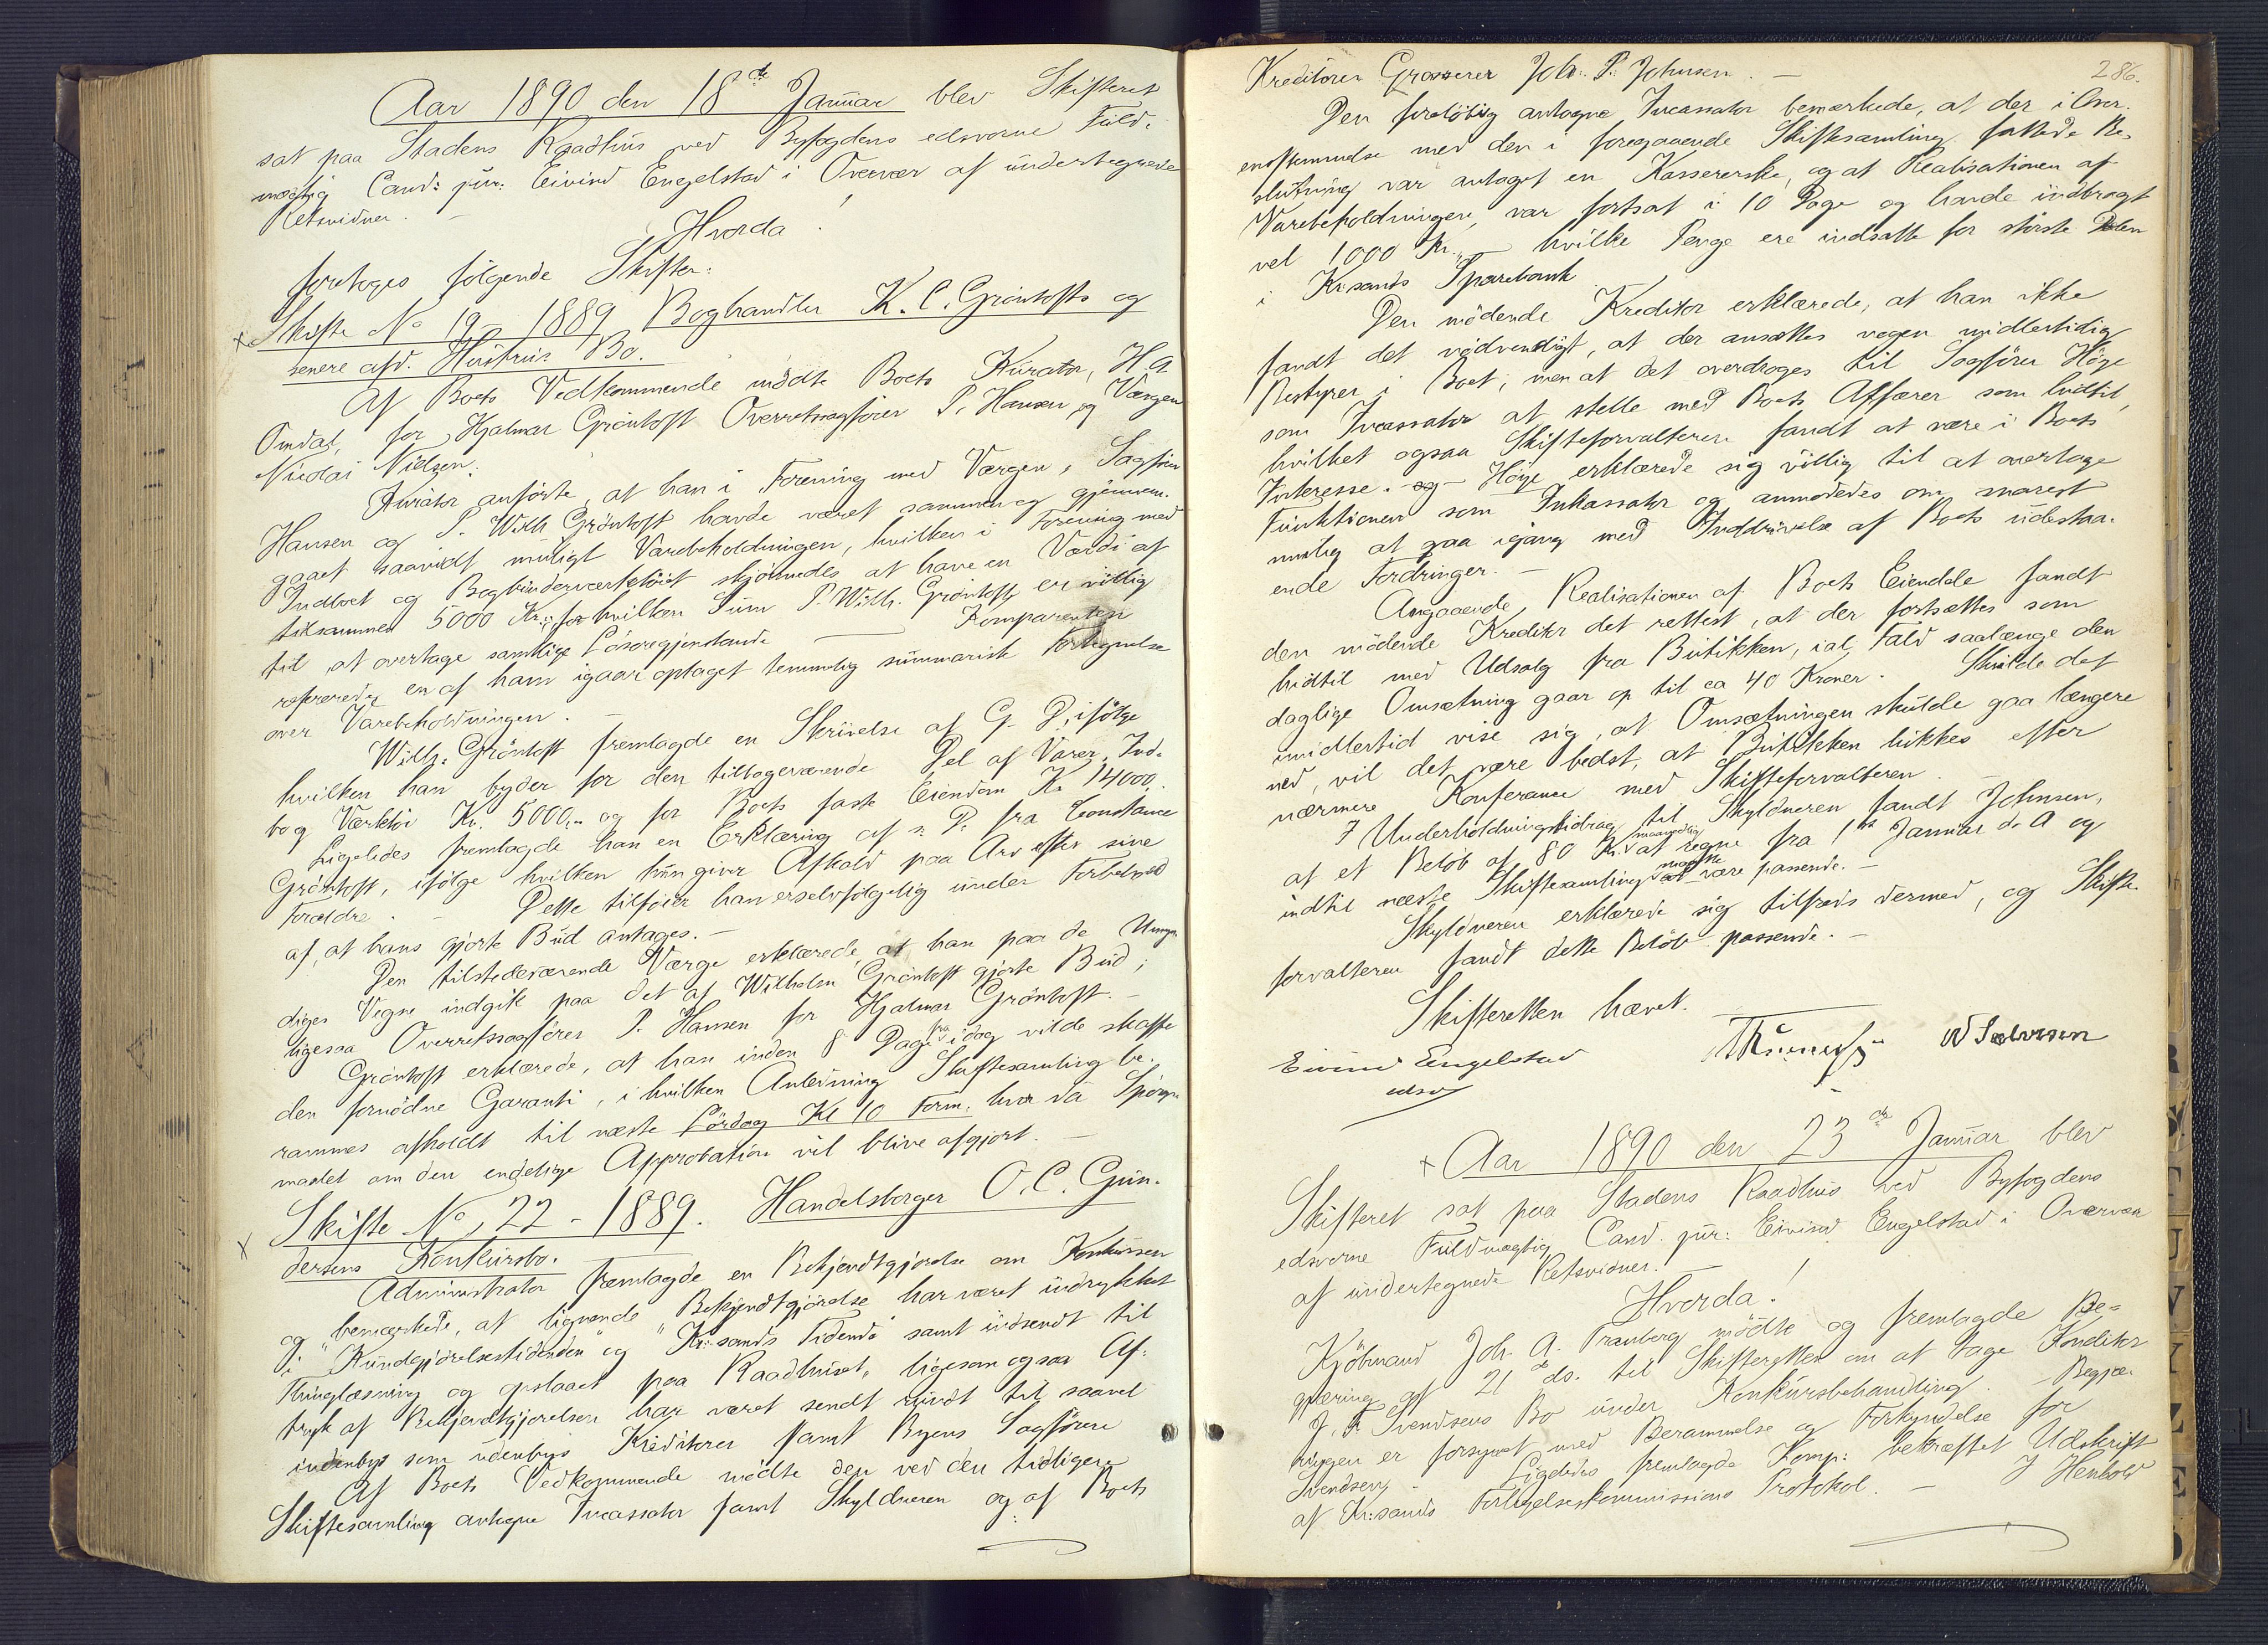 Aar 1890 den 18de Januar blev Skifteret
sat paa Stadens Raadhus ved Byfogdens edsvorne Fuld-
mægtig Cand: jur: Eivind Engelstad i Overvær af undertegnede
Retsvidner. –
Hvorda!
foretoges følgende Skifter:
x Skifte No 19 – 1889 Boghandler K. C. Grøntofts og
senere afd. Hustrus Bo.
Af Boets Vedkommende mødte Boets Kurator, H. A.
Omdal, for Hjalmar Grøntoft Overretssagfører P. Hansen og Værgen
Nicolai Nielsen.
Kurator anførte, at han i Forening med Værgen, Sagfører
Hansen og P. Wilh. Grøntoft havde været sammen og gjennem-
gaaet saavidt muligt Varebeholdningen, hvilken i Forening med
Indboet og Bogbinderværktøiet skjønnedes at have en Værdi af
tilsammen 5000 Kr., for hvilken Sum P. Wilh. Grøntoft er villig
til at overtage samtlige Løsøregjenstande — Komparenten
refererede en af ham igaar optaget temmelig summarisk Fortegnelse
over Varebeholdningen. –
Wilh. Grøntoft fremlagde en Skrivelse af G. D. ifølge
hvilken han byder for den tilbageværende Del af Varer, Ind-
bo og Værktøi Kr. 5000,- og for Boets faste Eiendom Kr 14000,-
Ligeledes fremlagde han en Erklæring af s. D. fra Constance
Grøntoft, ifølge hvilken hun giver Afkald paa Arv efter sine
Forældre. – Dette tilføier han er selvfølgelig under Forbehold
af, at hans gjorte Bud antages. –
Den tilstedeværende Værge erklærede, at han paa de Umyn-
diges Vegne indgik paa det af Wilhelm Grøntoft gjorte Bud;
ligesaa Overretssagfører P. Hansen for Hjalmar Grøntoft. –
Grøntoft erklærede, at han inden 8 Dage fra idag vilde skaffe
den fornødne Garanti, i hvilken Anledning Skiftesamling be-
rammes afholdt til næste Lørdag Kl 10 Form. hvor da Spørgs-
maalet om den endelige Approbation vil blive afgjort. –
x Skifte No 22 – 1889. Handelsborger O. C. Gun-
dersens Konkursbo.
Administrator fremlagde en Bekjendtgjørelse om Konkursen
og bemærkede, at lignende Bekjendtgjørelse har været indrykket
i "Kundgjørelsestidenden" og "Kr:sands Tidende" samt indsendt til
Thinglæsning og opslaaet paa Raadhuset, ligesom ogsaa Af-
tryk af Bekjendtgjørelsen har været sendt rundt til saavel
indenbys som udenbys Kreditorer samt Byens Sagførere
Af Boets Vedkommende mødte den ved den tidligere
Skiftesamling antagne Incassator samt Skyldneren og af Boets
286.
Kreditorer Grosserer Joh. P. Johnsen. –
Den foreløbig antagne Incassator bemærkede, at der i Over-
ensstemmelse med den i foregaaende Skiftesamling fattede Be-
slutning var antaget en Kassererske, og at Realisationen af
Varebeholdningen var fortsat i 10 Dage og havde indbragt
vel 1000 Kr., – hvilke Penge ere indsatte for største Delen
i Kr:sands Sparebank
Den mødende Kreditor erklærede, at han ikke
fandt det nødvendigt, at der ansættes nogen midlertidig
Bestyrer i Boet, men at det overdroges til Sagfører Høye
som Incassator at stelle med Boets Affærer som hidtil,
hvilket ogsaa Skifteforvalteren fandt at være i Boets
Interesse. og Høye erklærede sig villig til at overtage
Funktionen som Inkassator og anmodedes om snarest
mulig at gaa igang med Inddrivelse af Boets udestaa-
ende Fordringer. –
Angaaende Realisationen af Boets Eiendele fandt
den mødende Kreditor det rettest, at der fortsættes som
hidtil med Udsalg fra Butikken, ial Fald saalænge den
daglige Omsætning gaar op til ca 40 Kroner. Skulde det
imidlertid vise sig, at Omsætningen skulde gaa længere
ned, vil det være bedst, at Butikken lukkes efter
nærmere Konferance med Skifteforvalteren. –
I Underholdningsbidrag til Skyldneren fandt Johnsen,
at et Beløb af 80 Kr. maanedlig at regne fra 1ste Januar d. A og
indtil næste Skiftesamling maatte være passende. –
Skyldneren erklærede sig tilfreds dermed, og Skifte-
forvalteren fandt dette Beløb passende. –
Skifteretten hævet.
Eivind Engelstad
edsv
x Aar 1890 den 23de Januar blev
Skifteret sat paa Stadens Raadhus ved Byfogdens
edsvorne Fuldmægtig Cand. jur: Eivind Engelstad i Overvær
af undertegnede Retsvidner. –
Hvorda!
Kjøbmand Joh. A. Tranberg mødte og fremlagde Be-
gjæring af 21de ds. til Skifteretten om at tage Konditor
J. F. Svendsens Bo under Konkursbehandling. – Begjæ-
ringen er forsynet med Berammelse og Forkyndelse for
Svendsen. Ligeledes fremlagde Komp: bekræftet Udskrift
af Kr:sands Forligelseskommissions Protokol. – I Henhold